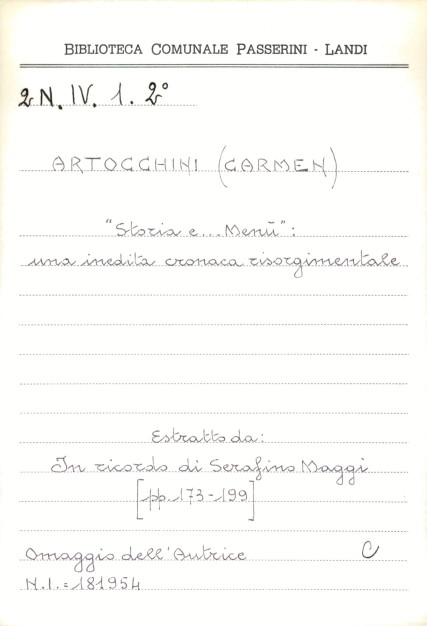 BIBLIOTECA COMUNALE PASSERINI - LANDI
2 N. IV. 1. 2°
ARTOCCHINI (CARMEN)
"Storia e... Menū":
una inedita cronaca risorgimentale
Estratto da:
In ricordo di Serafino Maggi
[pp. 173-199]
Omaggio dell'Autrice C
N.I. = 181954